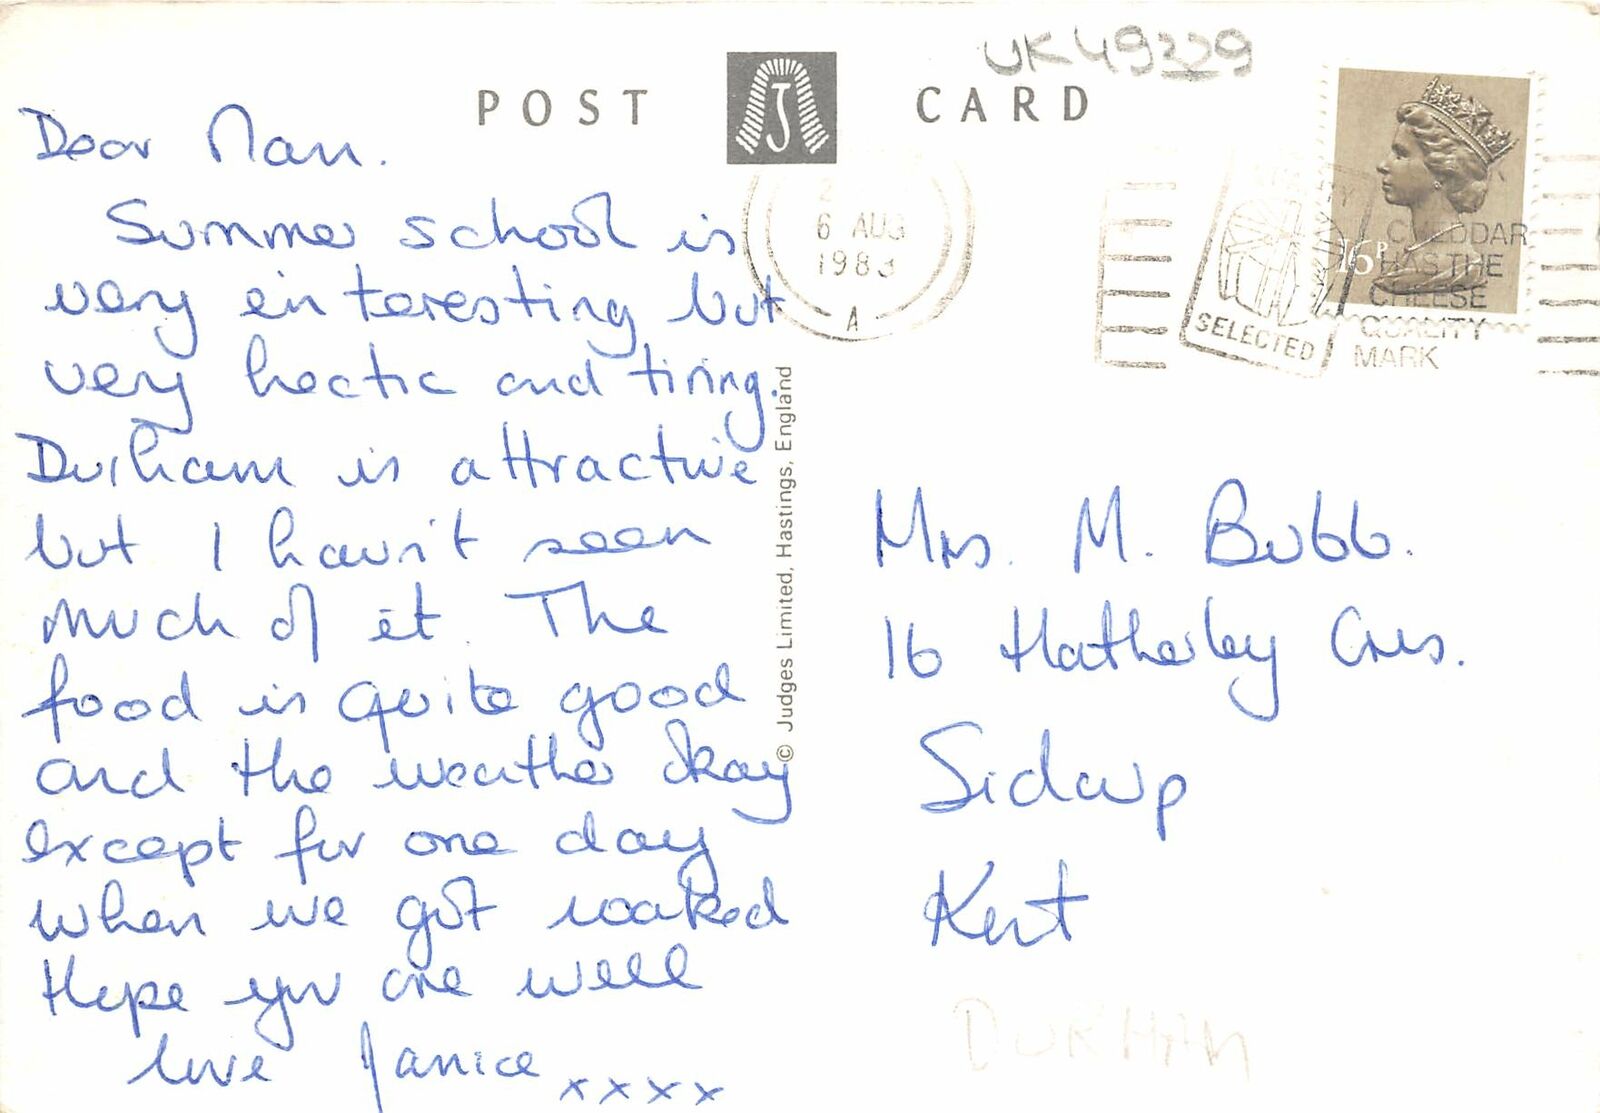 UK49229
POST CARD
J
6 AUG
1983
A
SELECTED
CHEDDAR
HAS THE
CHEESE
QUALITY
MARK
16P
Dear Nan.
Summer school is
very einteresting but
very hectic and tiring.
Durham is attractive
but I havn't seen
much of it. The
food is quite good
and the weather okay
except for one day
when we got soaked
Hope you are well
love Janice xxxx
© Judges Limited, Hastings, England
Mrs. M. Bubb.
16 Hatherley Cres.
Sidcup
Kent
DURHAM